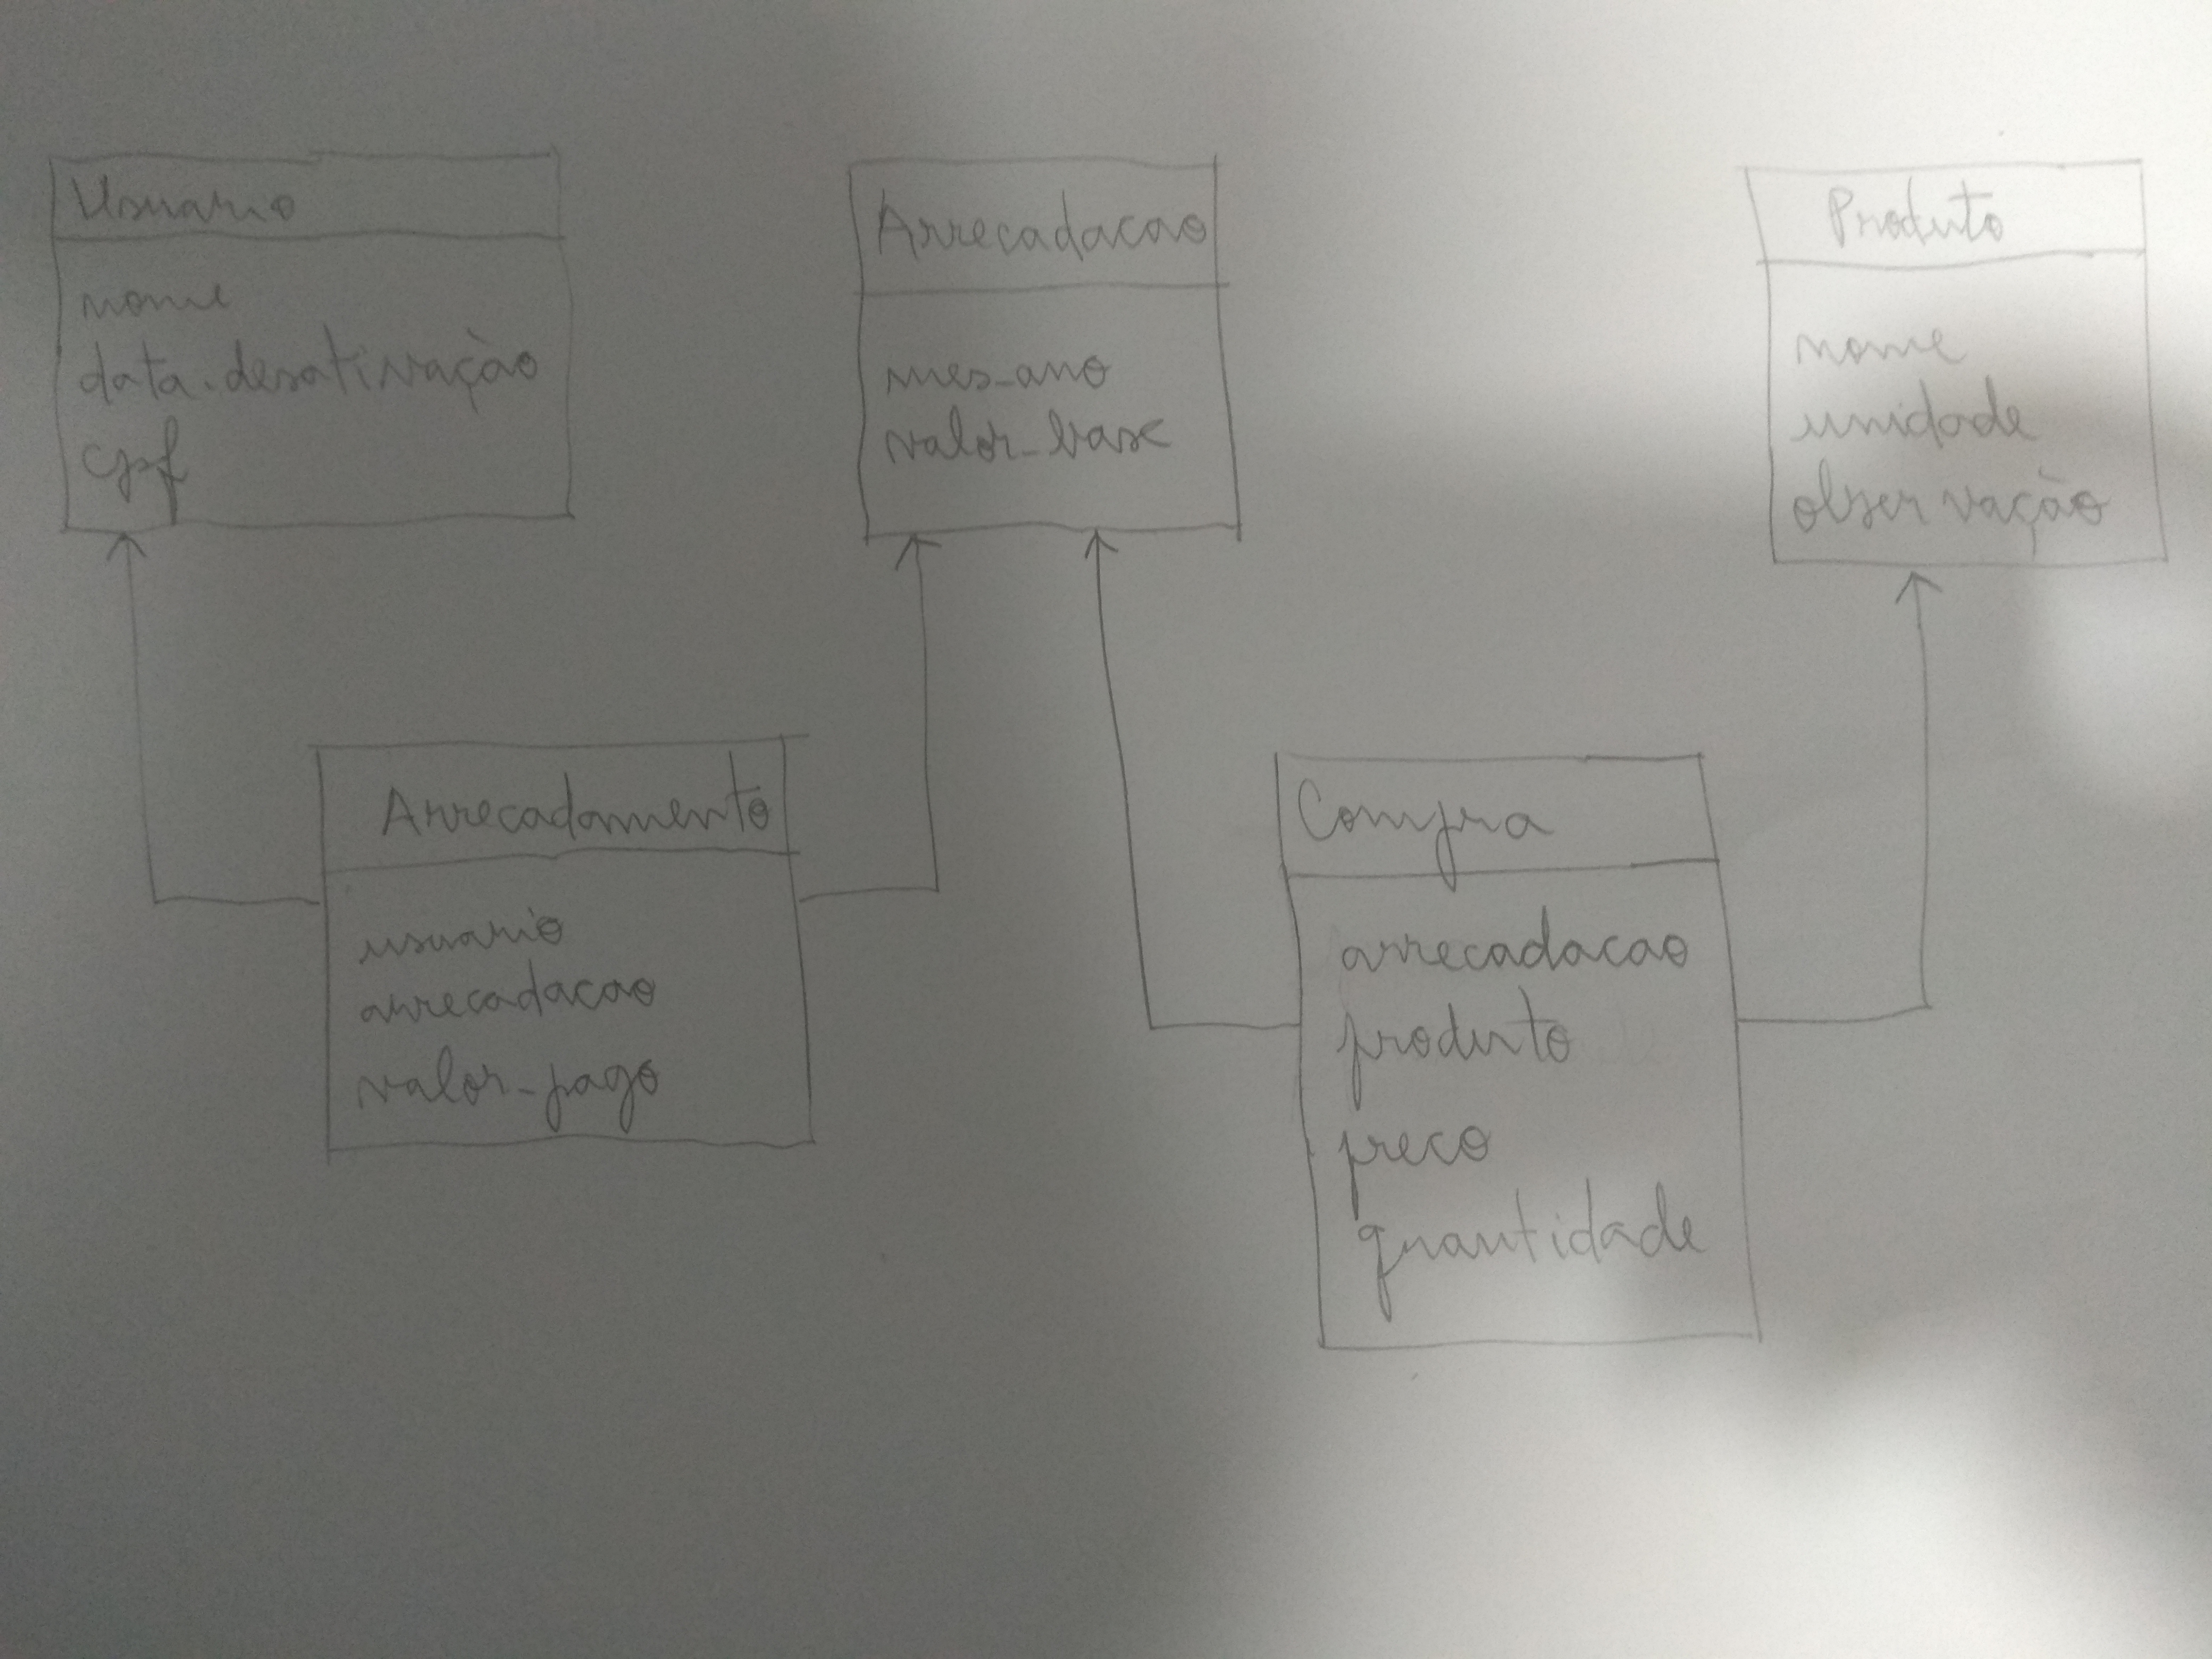 Usuario
nome
data-desativação
cpf
Arrecadacao
mes-ano
valor-base
Produto
nome
unidade
observação
Arrecadamento
usuario
arrecadacao
valor-pago
Compra
arrecadacao
produto
preco
quantidade